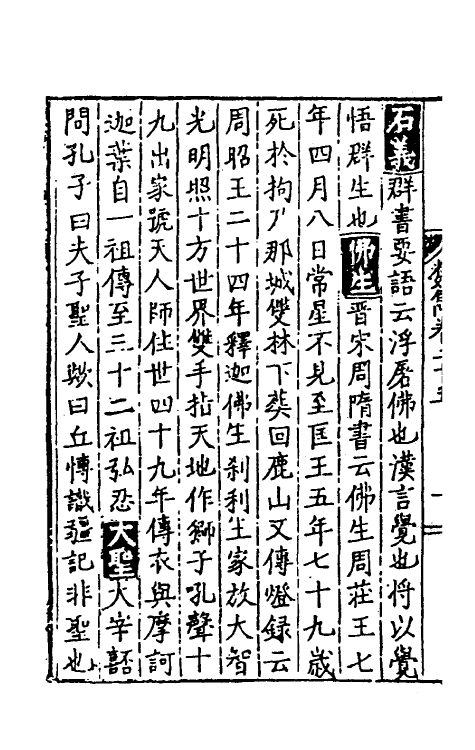 名義群書要語云浮屠佛也漢言覺也将以覺
悟群生也佛生晉宋周隋書云佛生周莊王七
年四月八日常星不見至匡王五年七十九歲
死於拘尸那城雙林下葵回鹿山又傳燈録云
周昭王二十四年釋迦佛生刹利王家放大智
光明照十方世界雙手指天地作獅子吼聲十
九出家號天人師住世四十九年傳衣與摩訶
迦葉自一祖傳至三十二祖弘忍大聖太宰嚭
問孔子曰夫子聖人歟曰丘愽識彊記非聖也上